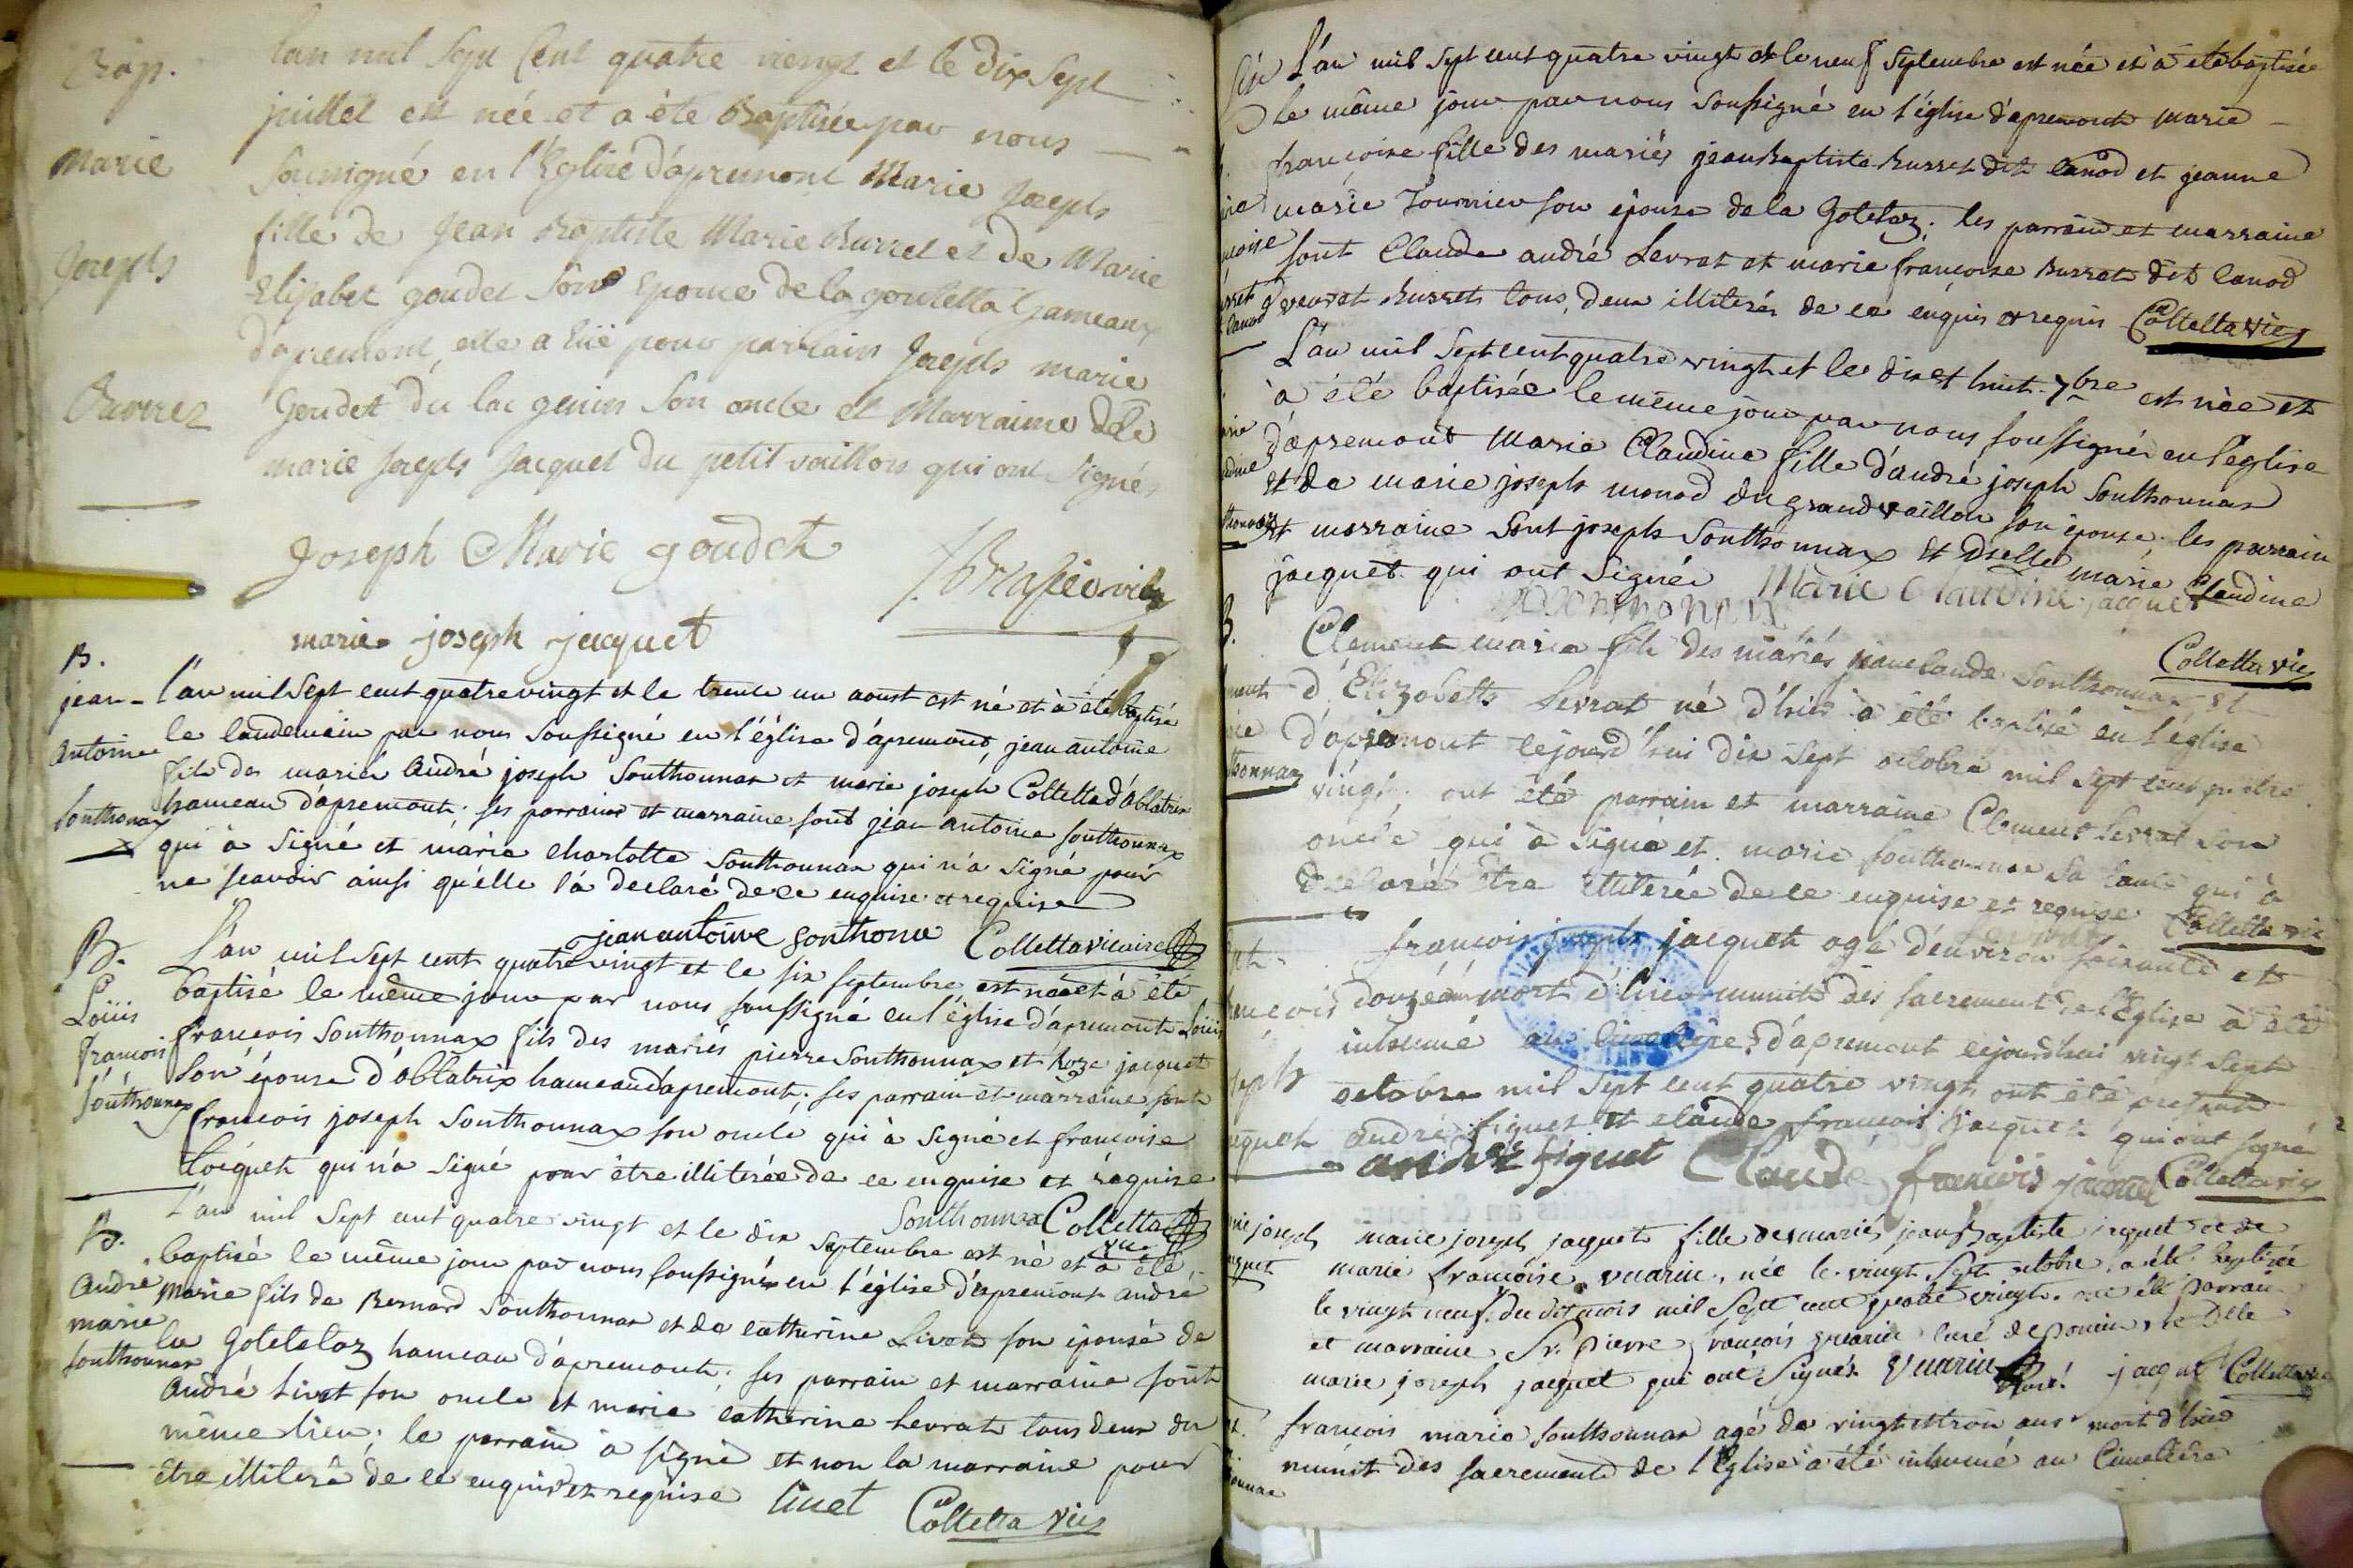 Bap.
Marie
Joseph
Burret
lan mil Sept Cent quatre viengt et le dix Sept
juillet est née et a été Baptisée par nous
Soussigné en l'Eglise d'apremont Marie Joseph
fille de Jean Baptiste Marie Burret et de Marie
Elisabet goudet Son Epouse de la goutetta hameaux
d'apremont, elle a Eüe pour parrain Joseph marie
Goudet du lac genin Son oncle et Marraine dlle
marie Joseph Jacquet du petit vaillon qui ont signé
Joseph Marie goudet
marie joseph jacquet
B.
jean-
antoine
Southonax
l'an mil Sept cent quatre vingt et le trente un aoust est né et à été baptisé
le lendemain par nous soussigné en l'église d'apremont, jean antoine
fils des mariés André joseph Southonnax et marie joseph Colletta d'oblatrix
hameau d'apremont; ses parrain et marraine sont jean antoine Southonnax
qui à Signé et marie charlotte Southonnax qui n'a Signé pour
ne scavoir ainsi qu'elle l'à declaré de ce enquise et requise
jean antoine Sonthona Collettavicaire
B.
Loüis
françois
Southonnax
L'an mil Sept cent quatre vingt et le six septembre est né et à été
baptisé le même jour par nous soussigné en l'église d'apremont Loüis
francois Southonnax fils des mariés pierre Southonnax et Roze jacquet
Son épouse d'oblatrix hameau d'apremont; ses parrain et marraine sont
francois joseph Southonnax son oncle qui à Signé et francoise
qui n'a Signé pour être illiterée de ce enquise et requise
Southonnax Colletta vic
B.
André
marie
Southonnax
L'an mil Sept cent quatre vingt et le dix septembre est né et à été
baptisé le même jour par nous soussigné en l'église d'apremont andré
marie fils de Bernard Southonnax et de catherine Livet son épouse de
la Goteletaz hameau d'apremont; ses parrain et marraine sont
André Livet son oncle et marie catherine Levrat tous deux du
même lieu; le parrain à signé et non la marraine pour
être illiterée de ce enquise et requise livet
Colletta vic
L'an mil sept cent quatre vingt et le neuf septembre est née et à été baptisée
le même jour par nous Soussigné en l'église d'apremont marie
françoise fille des mariés jean Baptiste Burret dit Canod et jeanne
marie Tournier son épouse de la Goteletaz; les parrain et marraine
sont Claude andré Levrat et marie francoise Burret dit Canod
Burret tous deux illiterés de ce enquis et requis Colletta vic
L'an mil Sept cent quatre vingt et le dix et huit 7bre est née et
à été baptisée le même jour par nous soussigné en l'église
d'apremont Marie Claudine fille d'andré joseph Southonnax
et de marie joseph monod du grand vaillon son épouse; les parrain
et marraine sont joseph Southonnax et Dselle marie Claudine
jacquet qui ont Signé Marie Claudine jacquet
Colletta vic
Clement marie fils des mariés jean claude Southonnax et
d'Elizabeth Levrat né d'hier à été baptisé en l'église
d'apremont cejourd'hui dix sept octobre mil sept cent quatre
vingt; ont été parrain et marraine Clement Levrat Son
oncle qui à Signé et marie Southonnax sa tante qui à
déclaré être illiterée de ce enquise et requise Colletta vic
françois joseph jacquet agé d'environ soixante et
douze ans mort d'hier munit des sacrement de l'Eglise à été
inhumé au cimetière d'apremont cejourdhui vingt sept
octobre mil sept cent quatre vingt, ont été présent
andré figuet et claude francois jacquet qui ont signé
andré figuet Claude francois jacquet Colletta vic
marie joseph jacquet fille des mariés jean Baptiste jacquet et de
marie francoise vuarin, née le vingt sept octobre, a été baptisée
le vingt neuf du dit mois mil Sept cent quatre vingt. ont été parrain
et marraine Sr. Pierre francois vuarin curé de poncin, et Dlle
marie joseph jacquet qui ont Signés. Vuarin Curé. jacquet Colletta vic
françois marie Southonnax agé de vingt et trois ans mort d'hier
munit des sacrements de l'Eglise à été inhumé au Cimetière